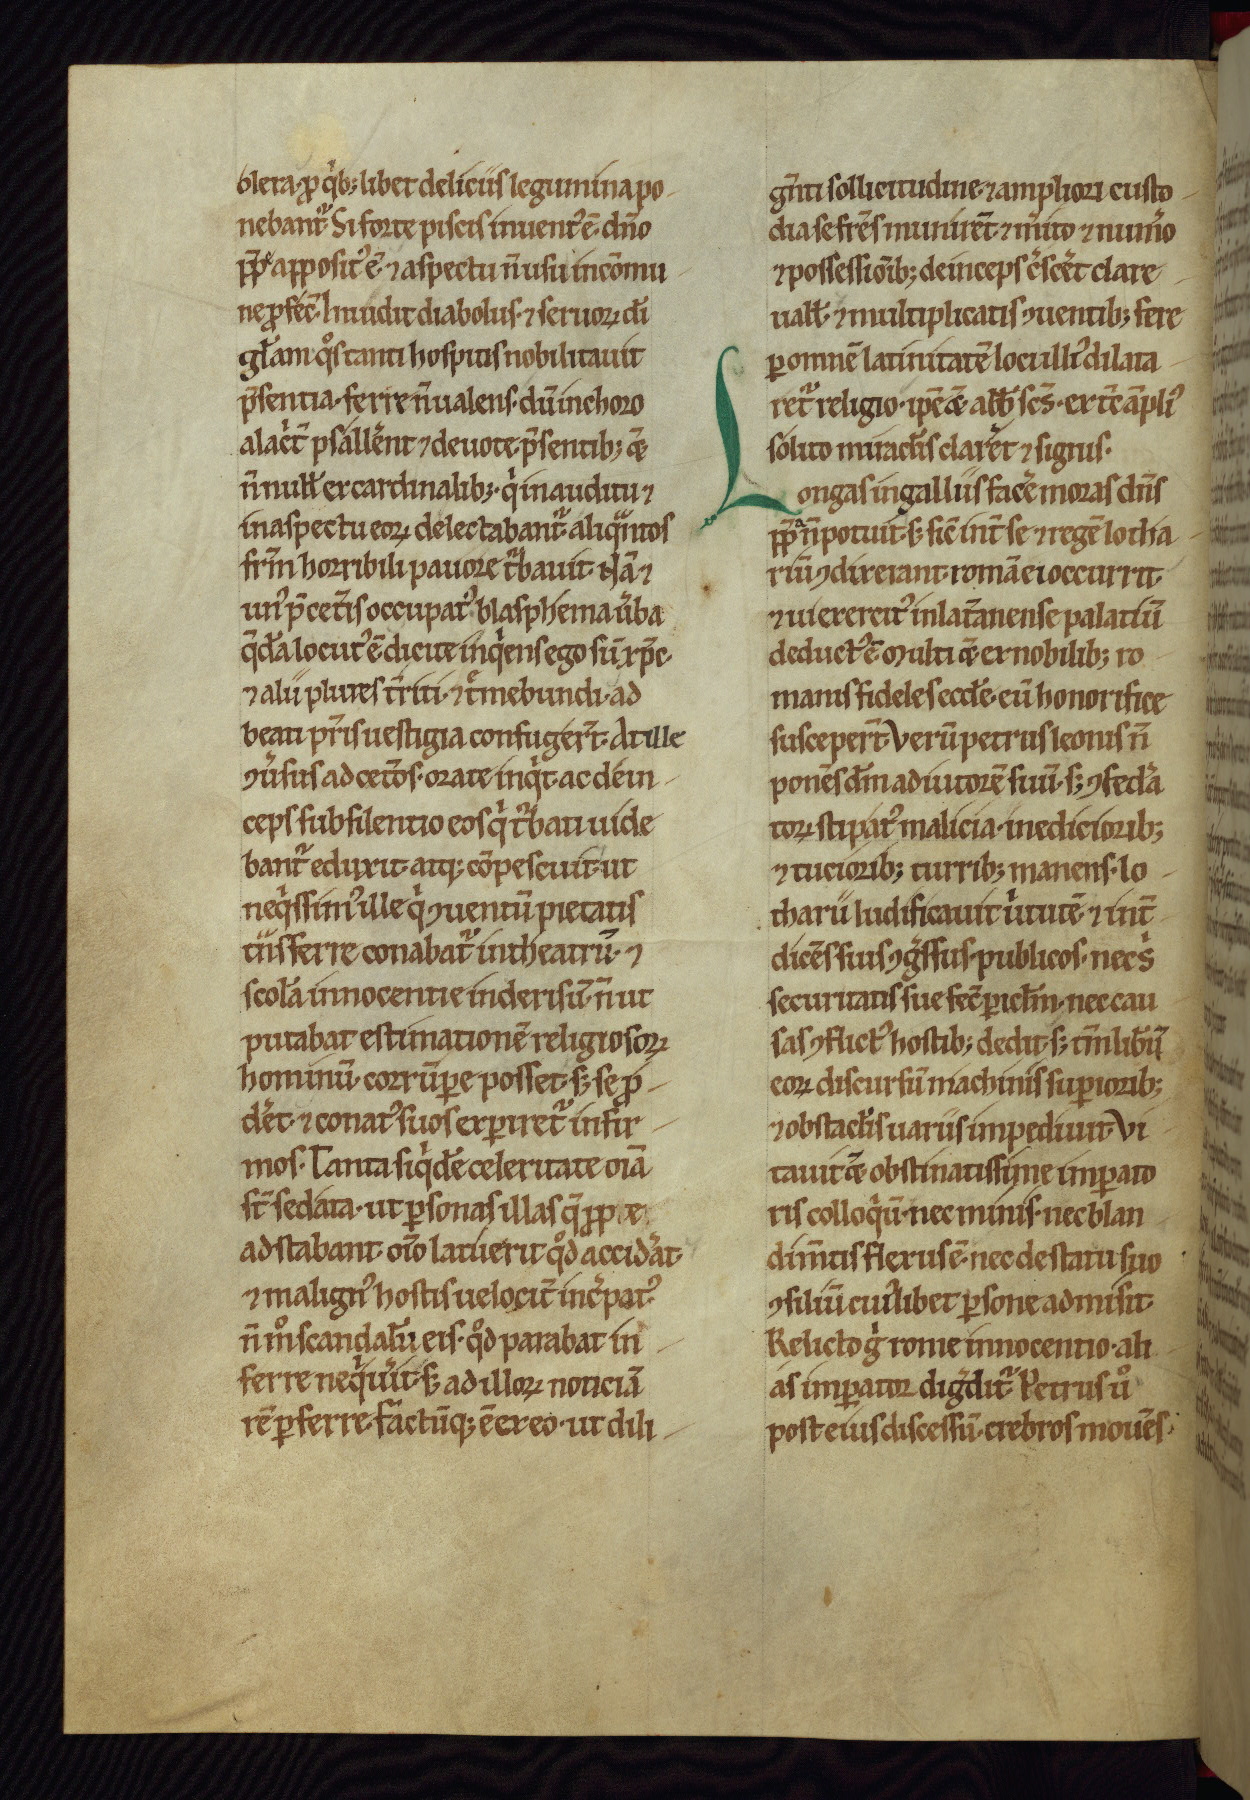 olera. ꝓ q̇b; libet deliciis legumina po-
nebant᷑. Si forte piscis inuent᷒ ē. dn̄o
pp̄ę apposit᷒ ē. ⁊ aspectu n̄ usu incōmu-
ne ꝓfec̄. Inuidit diabolus. ⁊ seruoꝝ di
gl̄am qͦs tanti hospitis nobilitauit
p̄sentia. ferre n̄ ualens. dū in choro
alac̄t psallent ⁊ deuote p̄sentib;
n̄null̄ ex cardinalib;. qͥ in auditu ⁊
in aspectu eoꝝ delectabant᷑. aliqͣntos
fr̄m horribili pauore t͛bauit. Nā ⁊
un᷒ p̄ cet̄is occupat᷒ blasphema ũba
q̄dā locut᷒ ē. dicite inqͥens ego sū xp̄c.
⁊ alii plures t̄riti. ⁊ t̄mebundi. ad
beati pr̄is uestigia confuger̄t. At ille
ꝯũsus ad cet̄os. orate inqͥt. ac dein-
ceps sub silentio eos qͥ t͛bati uide
bant᷑ eduxit. atq; cōpescuit. ut
neqͥssim᷒ ille qͥ ꝯuentū pietatis
tͣnsferre conabat᷑ in theatrū. ⁊
scolā innocentie in derisū. n̄ ut
putabat estimationē religiosoꝝ
hominū. corrūꝑe posset. s; se ꝓ-
det. ⁊ conat᷒ suos exꝑiret᷑ infir-
mos. Tanta siqͥdē celeritate oīa
st̄ sedata. ut ꝑsonas illas q̄ ꝓpe
adstabant. oīo latuerit qͦd accidat.
⁊ malign᷒ hostis uelocit̄ inc̄pat᷒
n̄ mͦ scandalū eis. qͦd parabat in-
ferre neqͥuit. s; ad illoꝝ noticiā
rē ꝑferre. factūq; ē ex eo. ut dili-
gn̄ti sollicitudine. ⁊ ampliori custo-
dia se fr̄es munirēt. ⁊ m̄ito ⁊ num̄o
⁊ possessioīb; deinceps c̄sc̄et clare-
uall̄. ⁊ multiplicatis ꝯuentib; fere
ꝑ omnē latinitatē loci illi᷒ dilata-
ret᷑ religio. ip̄e abb̄ sc̄s. ex tc̄ āpli᷒
solito miraclis claret ⁊ signis.
Longas in galliis facē moras dn̄s
pp̄ͣ n̄ potuit. s; sic̄ int̄ se ⁊ regē lotha-
riū ꝯdixerant. romā ei occurrit.
⁊ ui exercit᷒ in lat̄anense palatiū
deduct᷒ ē. Multi ex nobilib; ro-
manis fideles eccl̄e. eū honorifice
susceper̄t. Verū petrus leonis n̄
ponēs dm̄ adiutorē suū. s; ꝯfeda
toꝝ stipat᷒ malicia. in edicioꝛib;
⁊ tucioꝛib; turrib; manens. lo-
tharii ludificauit ũtutē. ⁊ int̄
dicēs suis ꝯg̃ssus. publicos. nec s̄
securitatis sue fec̄ ꝑiclm̄. nec cau
sas ꝯflict᷒ hostib; dedit. s; tm̄ libū
eoꝝ discursū machinis suꝑioꝛib;
⁊ obstaclis uariis impediuit. Vi
tauit obstinatissime imꝑato
ris colloqͥū. nec minis. nec blan
dim̄tis flexus ē. nec de statu suo
ꝯsiliū cui᷒libet ꝑsone admisit.
Relicto g̊ rome innocentio. ali
as imꝑator dig̃dit᷑. Petrus uͦ
post eius discessū. crebros mouēs.